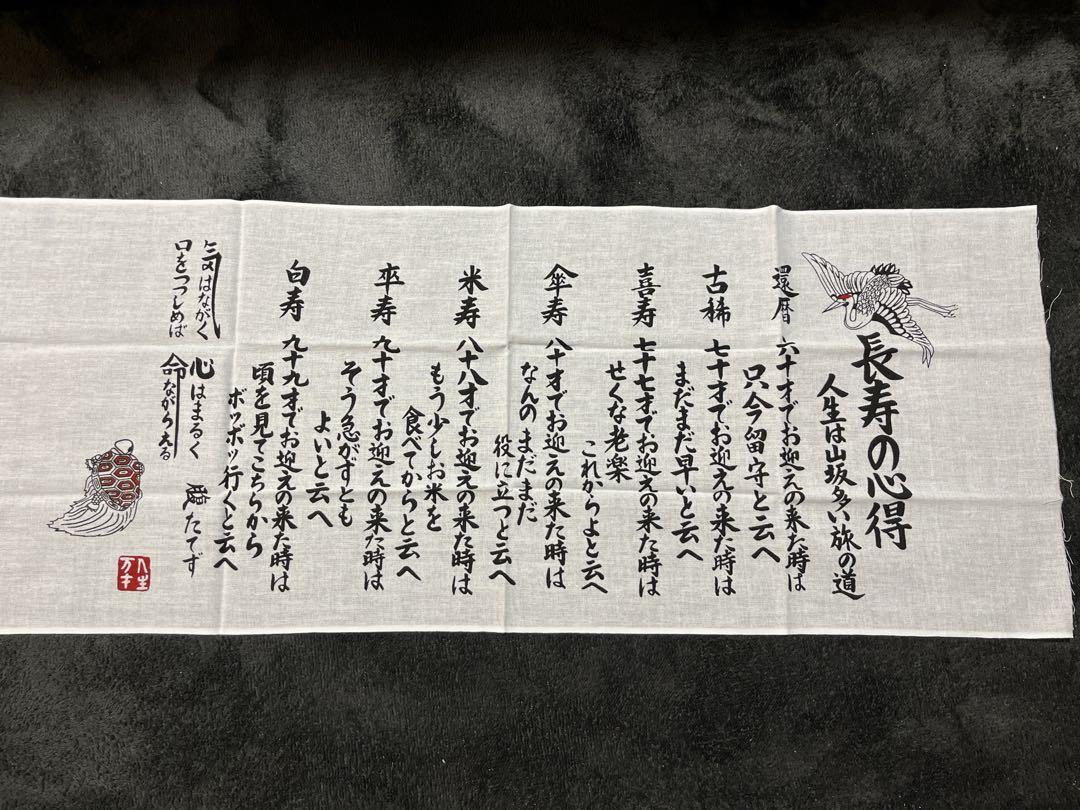 長寿の心得
人生は山坂多い旅の道
還暦 六十才でお迎えの来た時は
只今留守と云へ
古稀 七十才でお迎えの来た時は
まだまだ早いと云へ
喜寿 七十七才でお迎えの来た時は
せくな老楽
これからよと云へ
傘寿 八十才でお迎えの来た時は
なんのまだまだ
役に立つと云へ
米寿 八十八才でお迎えの来た時は
もう少しお米を
食べてからと云へ
卒寿 九十才でお迎えの来た時は
そう急がずとも
よいと云へ
白寿 九十九才でお迎えの来た時は
頃を見てこちらから
ボツボツ行くと云へ
気はながく 心はまるく 腹たてず
口をつつしめば 命ながらえる
人生
万才